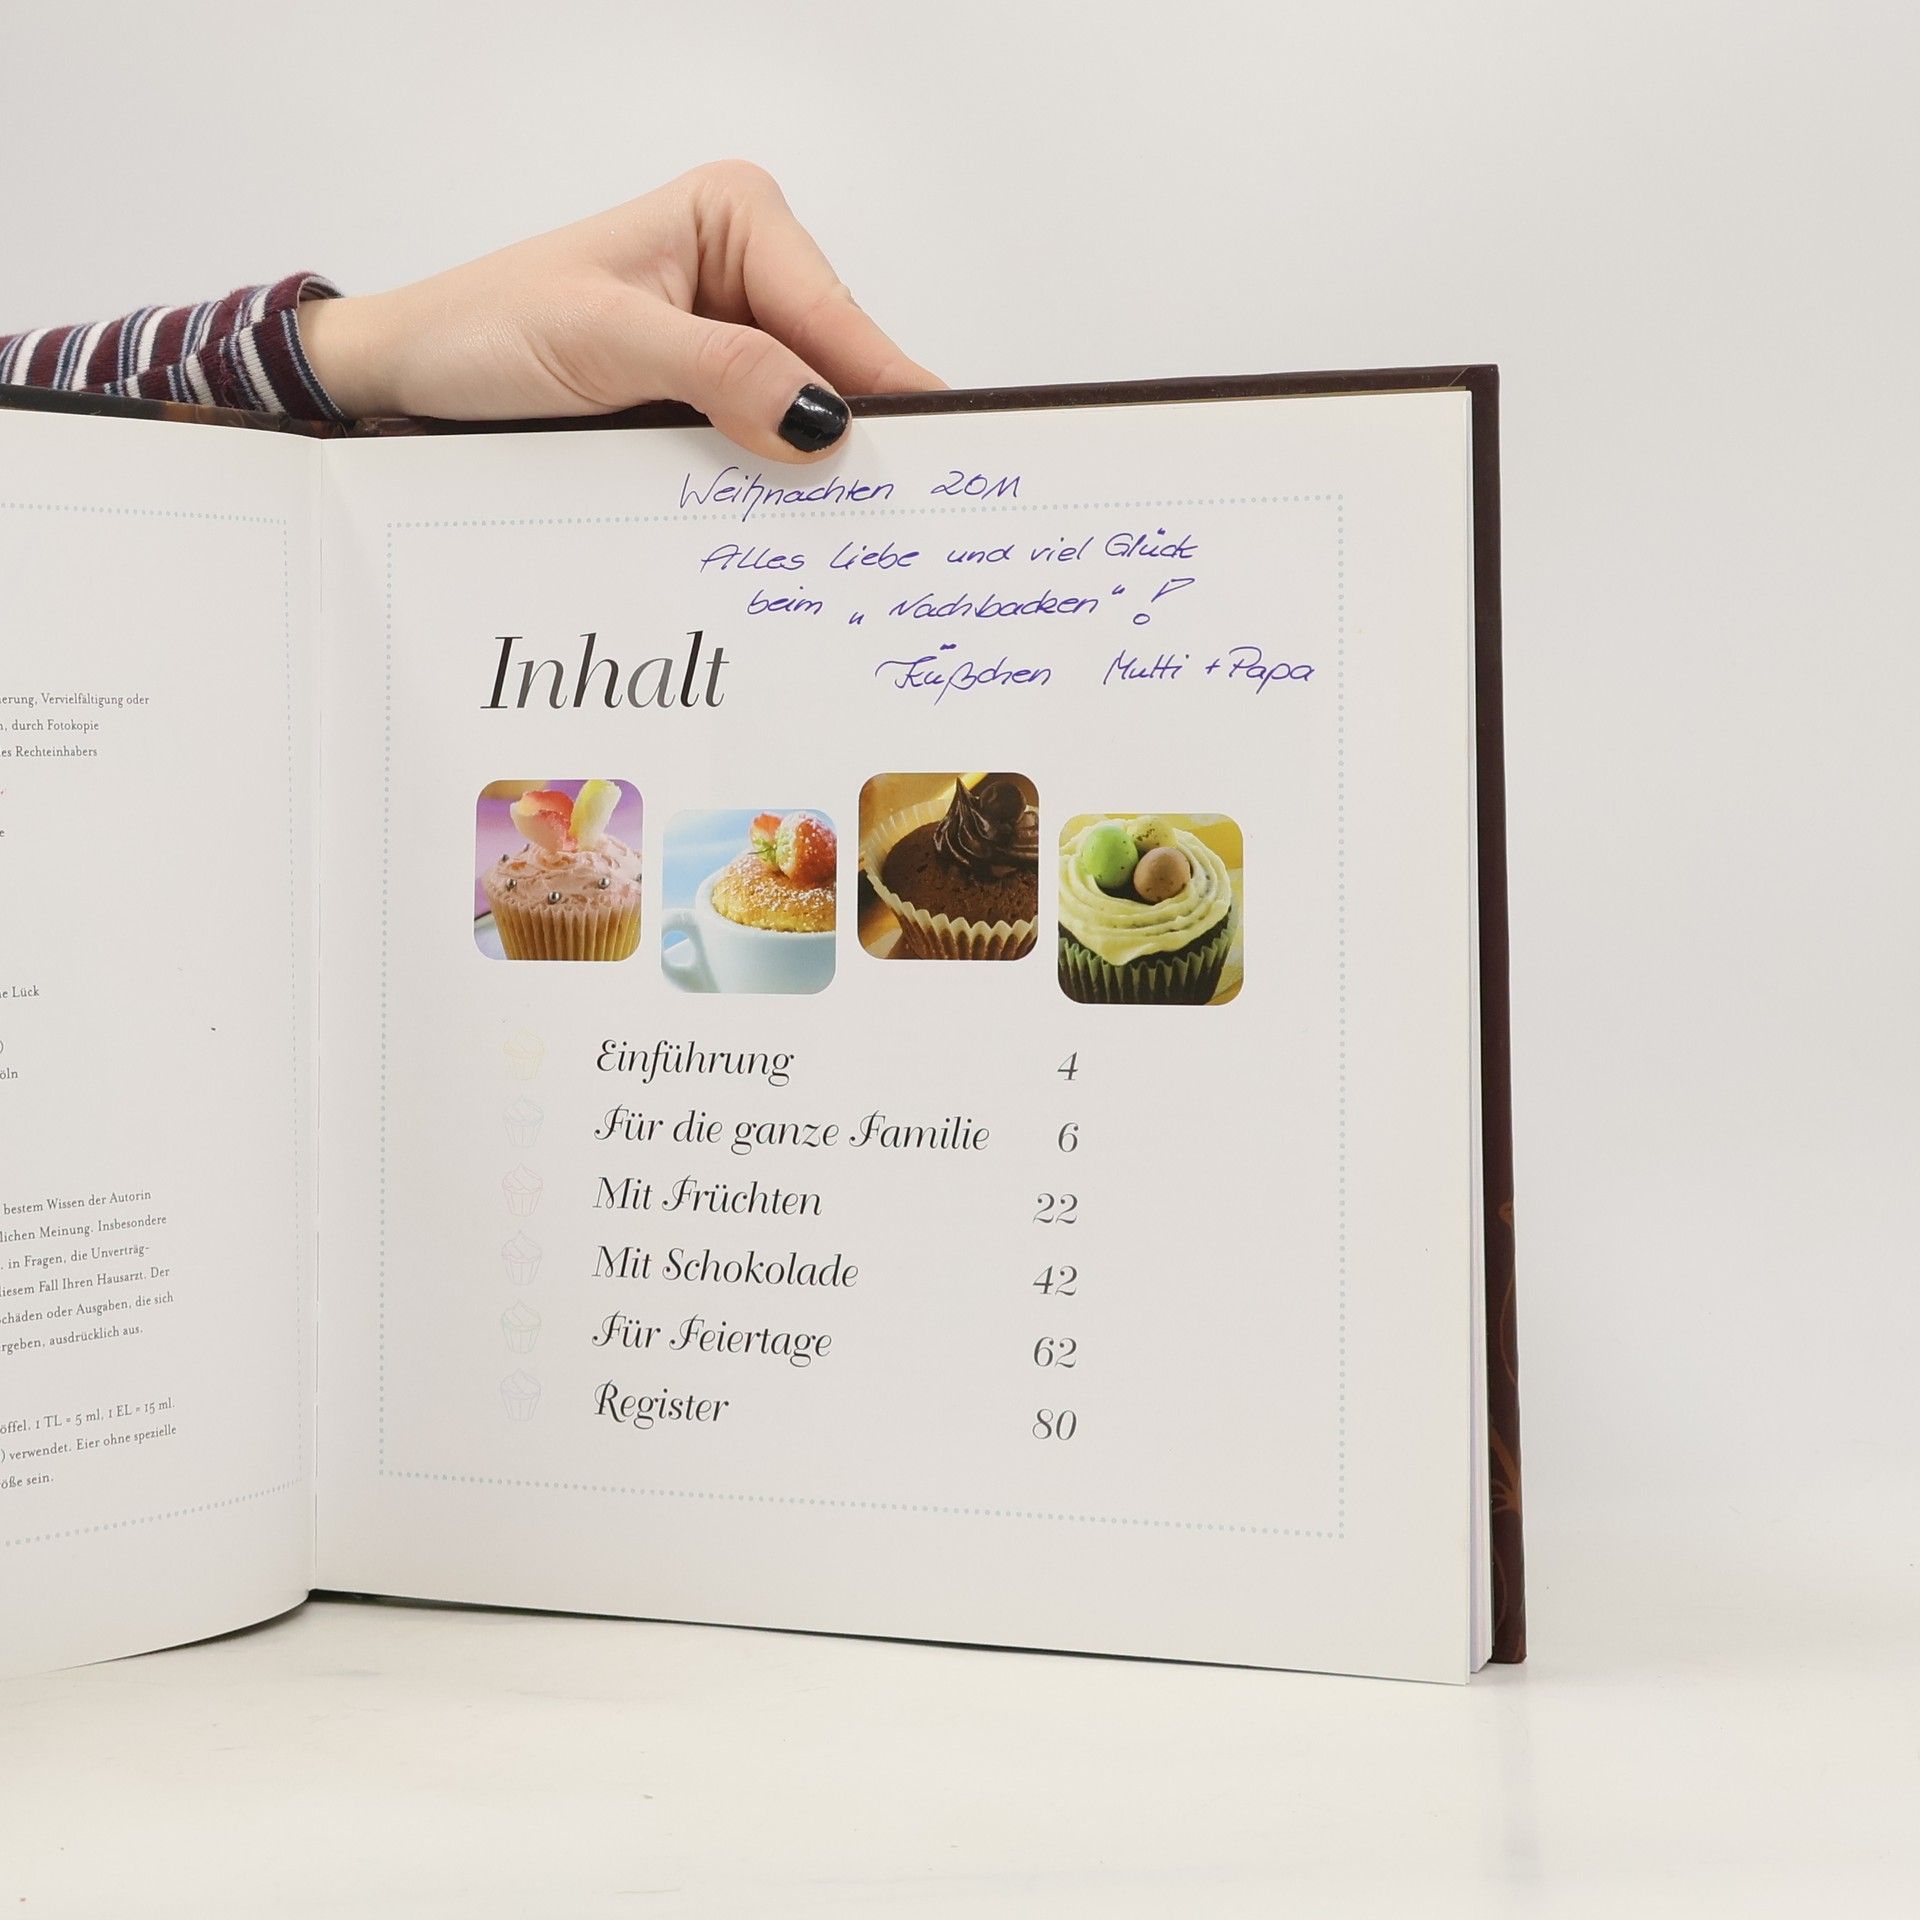 erung, Vervielfältigung oder
durch Fotokopie
es Rechteinhabers
e Lück
öln
bestem Wissen der Autorin
lichen Meinung. Insbesondere
in Fragen, die Unverträg-
diesem Fall Ihren Hausarzt. Der
chäden oder Ausgaben, die sich
rgeben, ausdrücklich aus.
öffel, 1 TL = 5 ml, 1 EL = 15 ml.
) verwendet. Eier ohne spezielle
öße sein.
Weihnachten 2011
Alles Liebe und viel Glück
beim „Nachbacken“!
Küßchen Mutti + Papa
Inhalt
Einführung 4
Für die ganze Familie 6
Mit Früchten 22
Mit Schokolade 42
Für Feiertage 62
Register 80